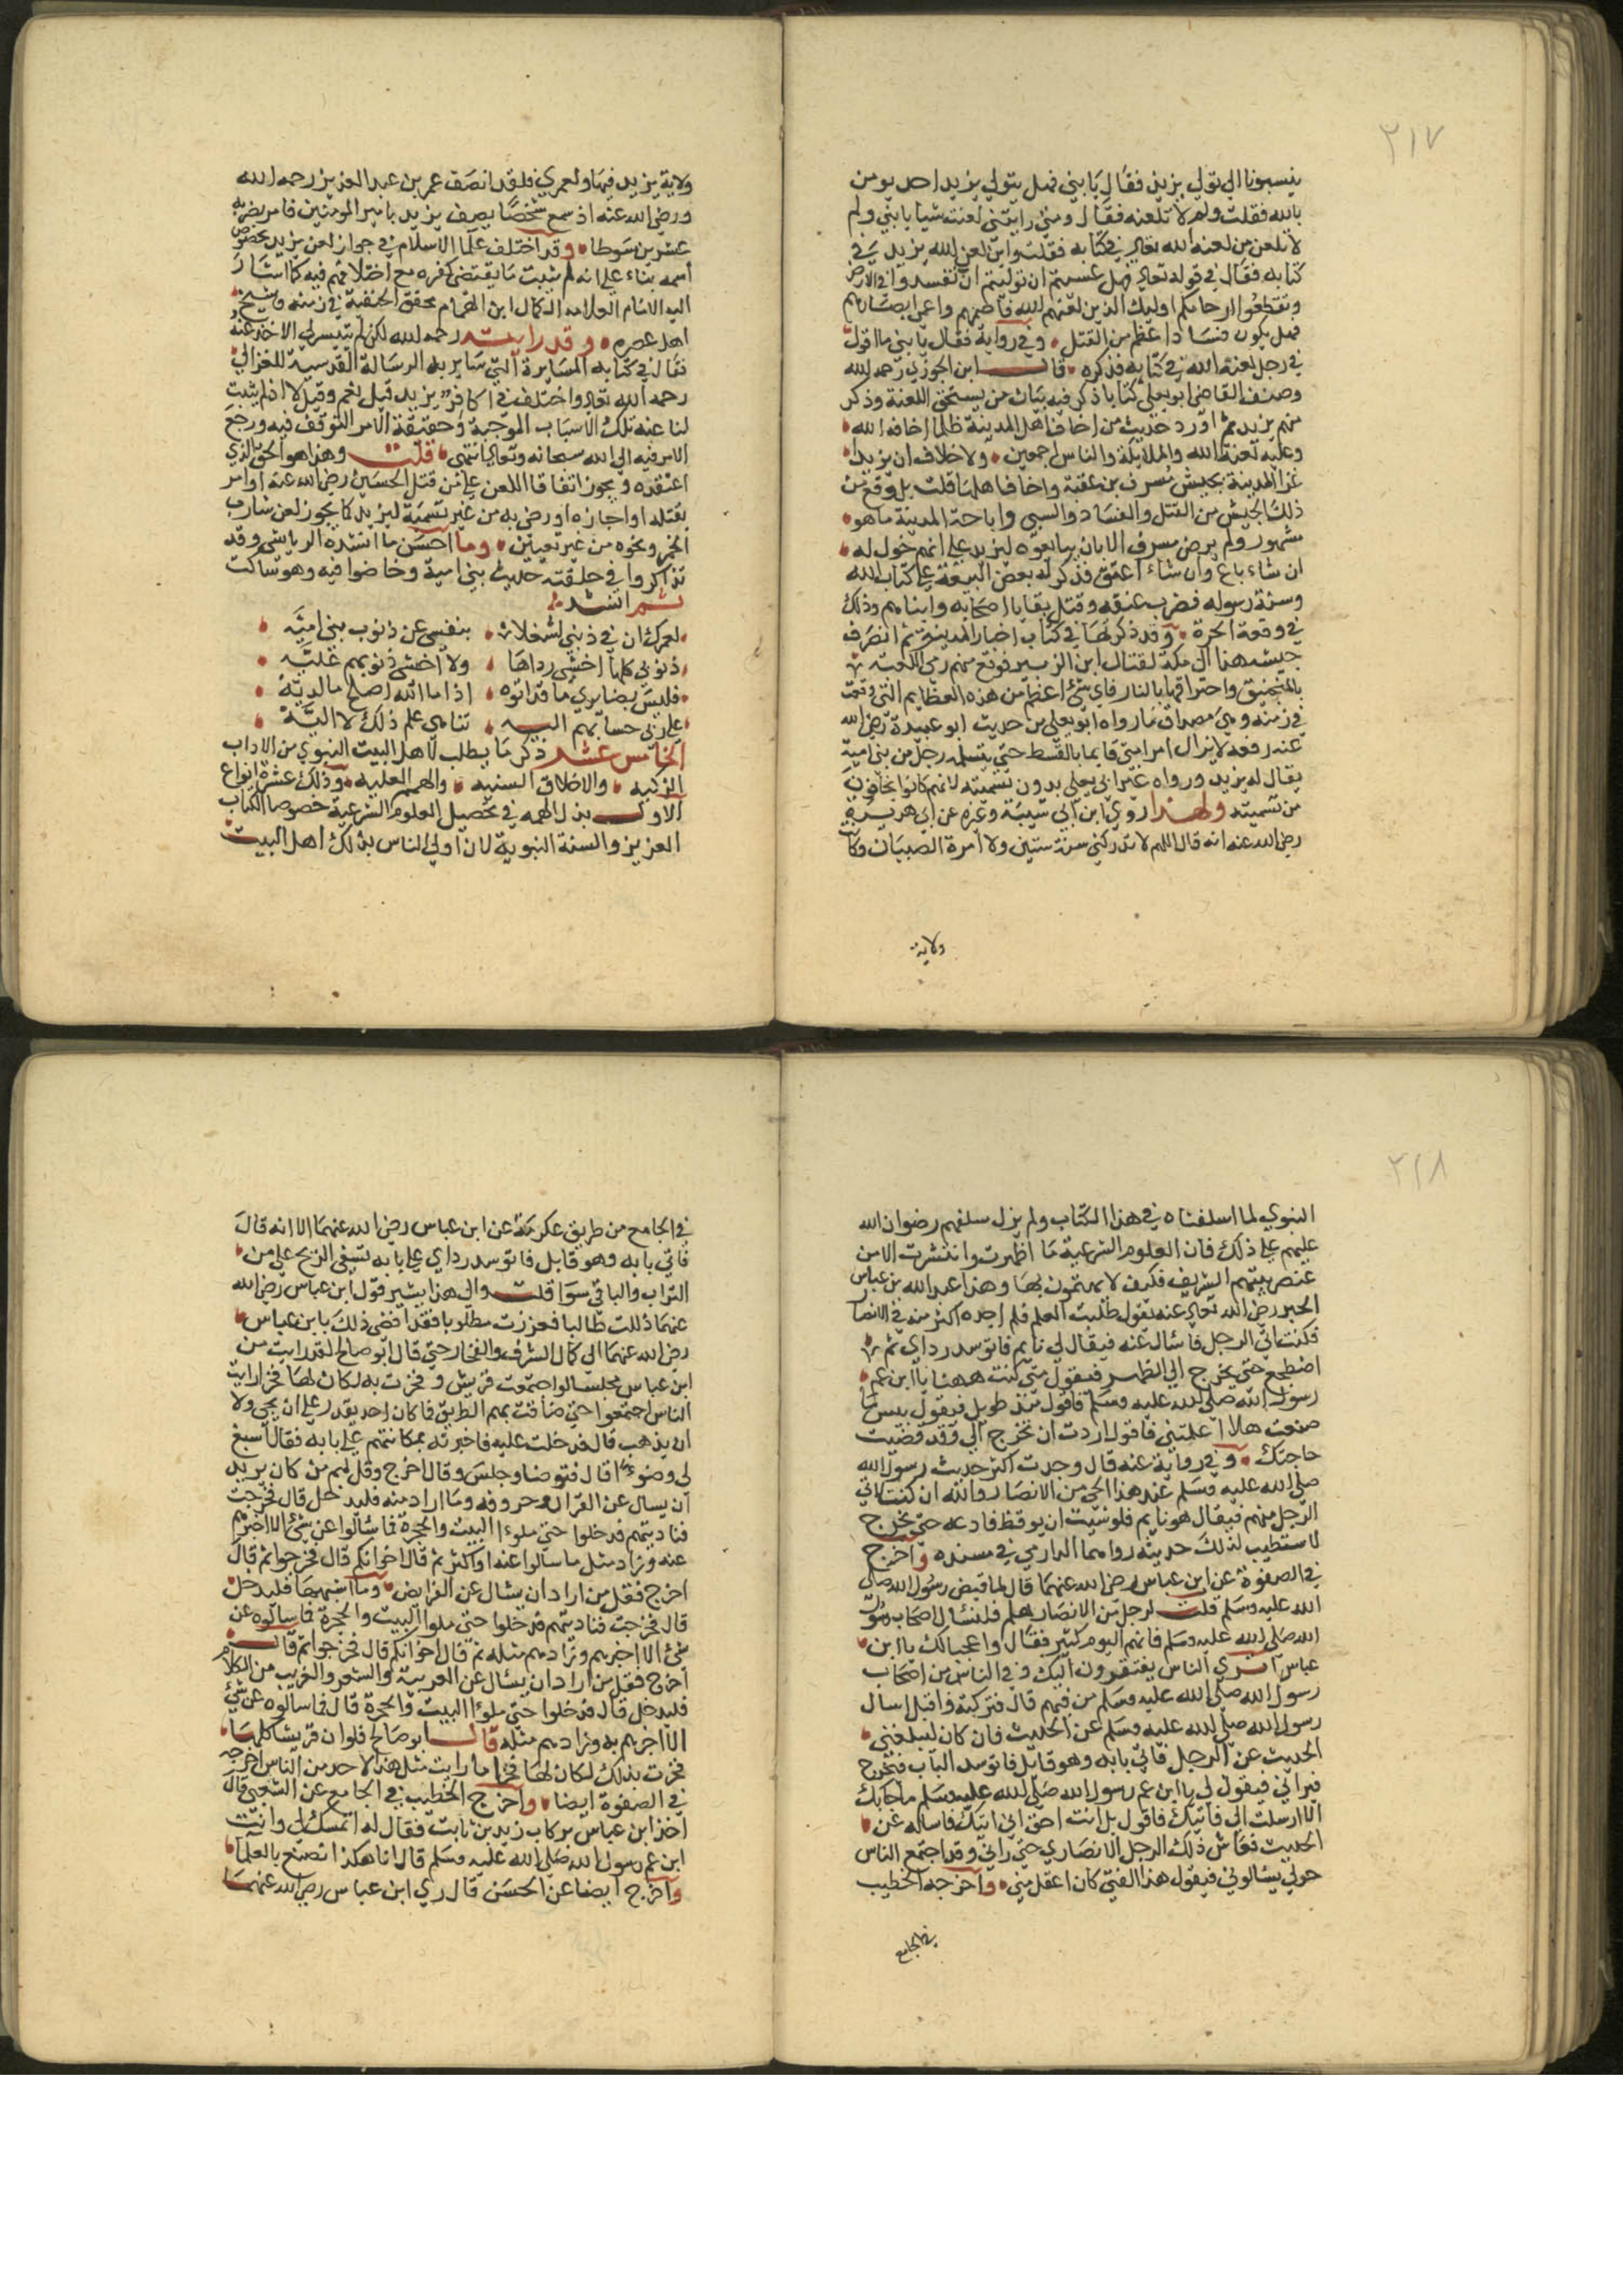 ٢١٧
ينسبونا الي تولي يزيد فقال يا بني فهل يتولي يزيد احد يومن
بالله فقلت ولم لا تلعنه فقال ومتي رايتني لعنت شيا يا بني ولم
لا تلعن من لعنه الله تعالي في كتابه فقلت واين لعن الله يزيد في
كتابه فقال في قوله تعالي فهل عسيتم ان توليتم ان تفسدوا في الارض
وتقطعوا ارحامكم اوليك الذين لعنهم الله فاصمهم واعمي ابصارهم
فهل يكون فسادا عظم من القتل وفي رواية فقال يا بني ما اقول
في رجل لعنه الله في كتابه فذكره قال ابن الجوزي رحمه الله
وصنف القاضي ابو يعلي كتابا ذكر فيه بيان من يستحق اللعنة وذكر
منهم يزيد ثم اورد حديث من اخاف اهل المدينة ظلما اخافه الله
وعليه لعنة الله والملايكة والناس اجمعين ولا خلاف ان يزيد
غزا المدينة بجيش مسرف بن عقبة واخاف اهلها قلت بل وقع من
ذلك الجيش من القتل والفساد والسبي واباحة المدينة ما هو
مشهور ولم يرض مسرف الا بان يبايعوه ليزيد علي انهم خول له
ان شاء باع وان شاء اعتق فذكر له بعض البيعة علي كتاب الله
وسنة رسوله فضرب عنقه وقتل بقايا اصحابه وابنايهم وذلك
في وقعة الحرة وقد ذكرتها في كتاب اخبار المدينة ثم انصرف
جيشه هذا الي مكة لقتال ابن الزبير فوقع منهم رمي الكعبه
بالمنجنيق واحراقها بالنار فاي شئ اعظم من هذه العظايم التي وقعت
في زمنه وهي مصداق ما رواه ابو يعلي من حديث ابو عبيدة رضي الله
عنه رفعه لا يزال امر امتي قايما بالقسط حتي يثلمه رجل من بني امية
يقال له يزيد ورواه غير ابي يعلي بدون تسميته لانهم كانوا يخافون
من تسميته ولهذا روي ابن ابي شيبة وغيره عن ابي هريرة
رضي الله عنه انه قال اللهم لا تدركني سنة ستين ولا امرة الصبيان وكانت
ولاية
ولاية يزيد فيها ولعمري فلقد انصف عمر بن عبد العزيز رحمه الله
ورضي الله عنه اذ سمع شخصا يصف يزيد بامير المومنين فامر بضربه
عشرين سوطا وقد اختلف علما الاسلام في جواز لعن يزيد بخصوص
اسمه بناء علي انه لم يثبت ما يقتضي كفره مع اختلافهم فيه كما اشار
اليه الامام العلامه الكمال ابن الهمام محقق الحنفية في زمنه وشيخ
اهل عصره وقد رايت رحمه الله لكن لم يتيسر لي الاخذ عنه
فقال في كتابه المسايرة التي ساير به الرسالة القدسية للغزالي
رحمه الله تعالي واختلف في اكفار يزيد قيل نعم وقيل لا اذ لم يثبت
لنا عنه تلك الاسباب الموجبة وحقيقة الامر التوقف فيه ورجع
الامر فيه الي الله سبحانه وتعالي انتهي قلت وهذا هو الحق الذي
اعتقده ويجوز اتفاقا اللعن علي من قتل الحسين رضي الله عنه او امر
بقتله او اجازه او رضي به من غير تسمية ليزيد كما يجوز لعن شارب
الخمر ونحوه من غير تعيين وما احسن ما انشده الرياشي وقد
تذاكروا في حلقته حديث بني امية وخاضوا فيه وهو ساكت
ثم انشد
لعمرك ان في ذنبي لشغلا بنفسي عن ذنوب بني اميه
ذنوبي كلها اخشي رداها ولا اخشي ذنوبهم عليه
فليس بضايري ما قد اتوه اذا ما الله اصلح ما لديه
علي ربي حسابهم اليه تناهي علم ذلك لا اليه
الخامس عشر ذكر ما يطلب لاهل البيت النبوي من الاداب
الزكيه والاخلاق السنيه والهمم العليه وذلك عشرة انواع
الاول بذل الهمه في تحصيل العلوم الشرعية خصوصا الكتاب
العزيز والسنة النبوية لان اولي الناس بذلك اهل البيت
٢١٨
النبوي لما اسلفناه في هذا الكتاب ولم يزل سلفهم رضوان الله
عليهم علي ذلك فان العلوم الشرعية ما اظهرت وانتشرت الا من
عنصر بيتهم الشريف فكيف لا يهتمون بها وهذا عبد الله بن عباس
الحبر رضي الله تعالي عنه يقول طلبت العلم فلم اجده اكثر منه في الانصار
فكنت اتي الرجل فاسال عنه فيقال لي نايم فاتوسد رداي ثم
اضطجع حتي يخرج الي الظهر فيقول متي كنت ههنا يا ابن عم
رسول الله صلي الله عليه وسلم فاقول منذ طويل فيقول بيس ما
صنعت هلا اعلمتني فاقول اردت ان تخرج الي وقد قضيت
حاجتك وفي رواية عنه قال وجدت اكثر حديث رسول الله
صلي الله عليه وسلم عند هذا الحي من الانصار والله ان كنت لاتي
الرجل منهم فيقال هو نايم فلو شيت ان يوقظ فادعه حتي يخرج
لاستطيب لذلك حديثه رواهما الدارمي في مسنده واخرج
في الصفوة عن ابن عباس رضي الله عنهما قال لما قبض رسول الله صلي
الله عليه وسلم قلت لرجل من الانصار هلم فلنسال اصحاب رسول
الله صلي الله عليه وسلم فانهم اليوم كثير فقال واعجبا لك يا ابن
عباس اتري الناس يفتقرون اليك وفي الناس من اصحاب
رسول الله صلي الله عليه وسلم من فيهم قال فتركته واقبل اسال
رسول الله صلي الله عليه وسلم عن الحديث فان كان ليبلغني
الحديث عن الرجل فاتي بابه وهو قايل فاتوسد الباب فيخرج
فيراني فيقول لي يا ابن عم رسول الله صلي الله عليه وسلم ما جابك
الا ارسلت الي فاتيك فاقول بل انت احق ان اتيك فاساله عن
الحديث فعاش ذلك الرجل الانصاري حتي راني وقد اجتمع الناس
حولي يسالوني فيقول هذا الفتي كان اعقل مني واخرجه الخطيب
في الجامع
في الجامع من طريق عكرمة عن ابن عباس رضي الله عنهما الا انه قال
فاتي بابه وهو قايل فاتوسد رداي علي بابه تسفي الريح علي من
التراب والباقي سوا قلت والي هذا يشير قول ابن عباس رضي الله
عنهما ذللت طالبا فعززت مطلوبا فقد افضي ذلك بابن عباس
رضي الله عنهما الي كمال الشرف والفخار حتي قال ابو صالح لقد رايت من
ابن عباس مجلسا لو اجتمعت قريش وفخرت به لكان لها فخرا رايت
الناس اجتمعوا حتي ضاقت بهم الطريق فما كان احد يقدر علي ان يجي ولا
ان يذهب قال فدخلت عليه فاخبرته بمكانتهم علي بابه فقال اسبغ
لي وضوءا قال فتوضا وجلس وقال اخرج وقل لهم من كان يريد
ان يسال عن القران وحروفه وما اراد منه فليدخل قال فخرجت
فناديتهم فدخلوا حتي ملوءا البيت والحجرة فما سالوا عن شئ الا اخبرهم
عنه وزاد مثل ما سالوا عنه او اكثر ثم قال اخوانكم قال فخرجوا ثم قال
اخرج فقل من اراد ان يسال عن الفرايض وما اشبهها فليدخل
قال فخرجت فناديتهم فدخلوا حتي ملوا البيت والحجرة فما سالوه عن
شئ الا اخبرهم وزادهم مثله ثم قال اخوانكم قال فخرجوا ثم قال
اخرج فقل من اراد ان يسال عن العربية والشعر والغريب من الكلام
فليدخل قال فدخلوا حتي ملوءا البيت والحجرة قال فما سالوه عن شئ
الا اخبرهم به وزادهم مثله قال ابو صالح فلو ان قريشا كلها
فخرت بذلك لكان لها فخرا ما رايت مثل هذا لاحد من الناس اخرجه
في الصفوة ايضا واخرج الخطيب في الجامع عن الشعبي قال
اخذ ابن عباس بركاب زيد بن ثابت فقال له اتمسك لي وانت
ابن عم رسول الله صلي الله عليه وسلم قال انا هكذا نصنع بالعلما
واخرج ايضا عن الحسن قال ري ابن عباس رضي الله عنهما